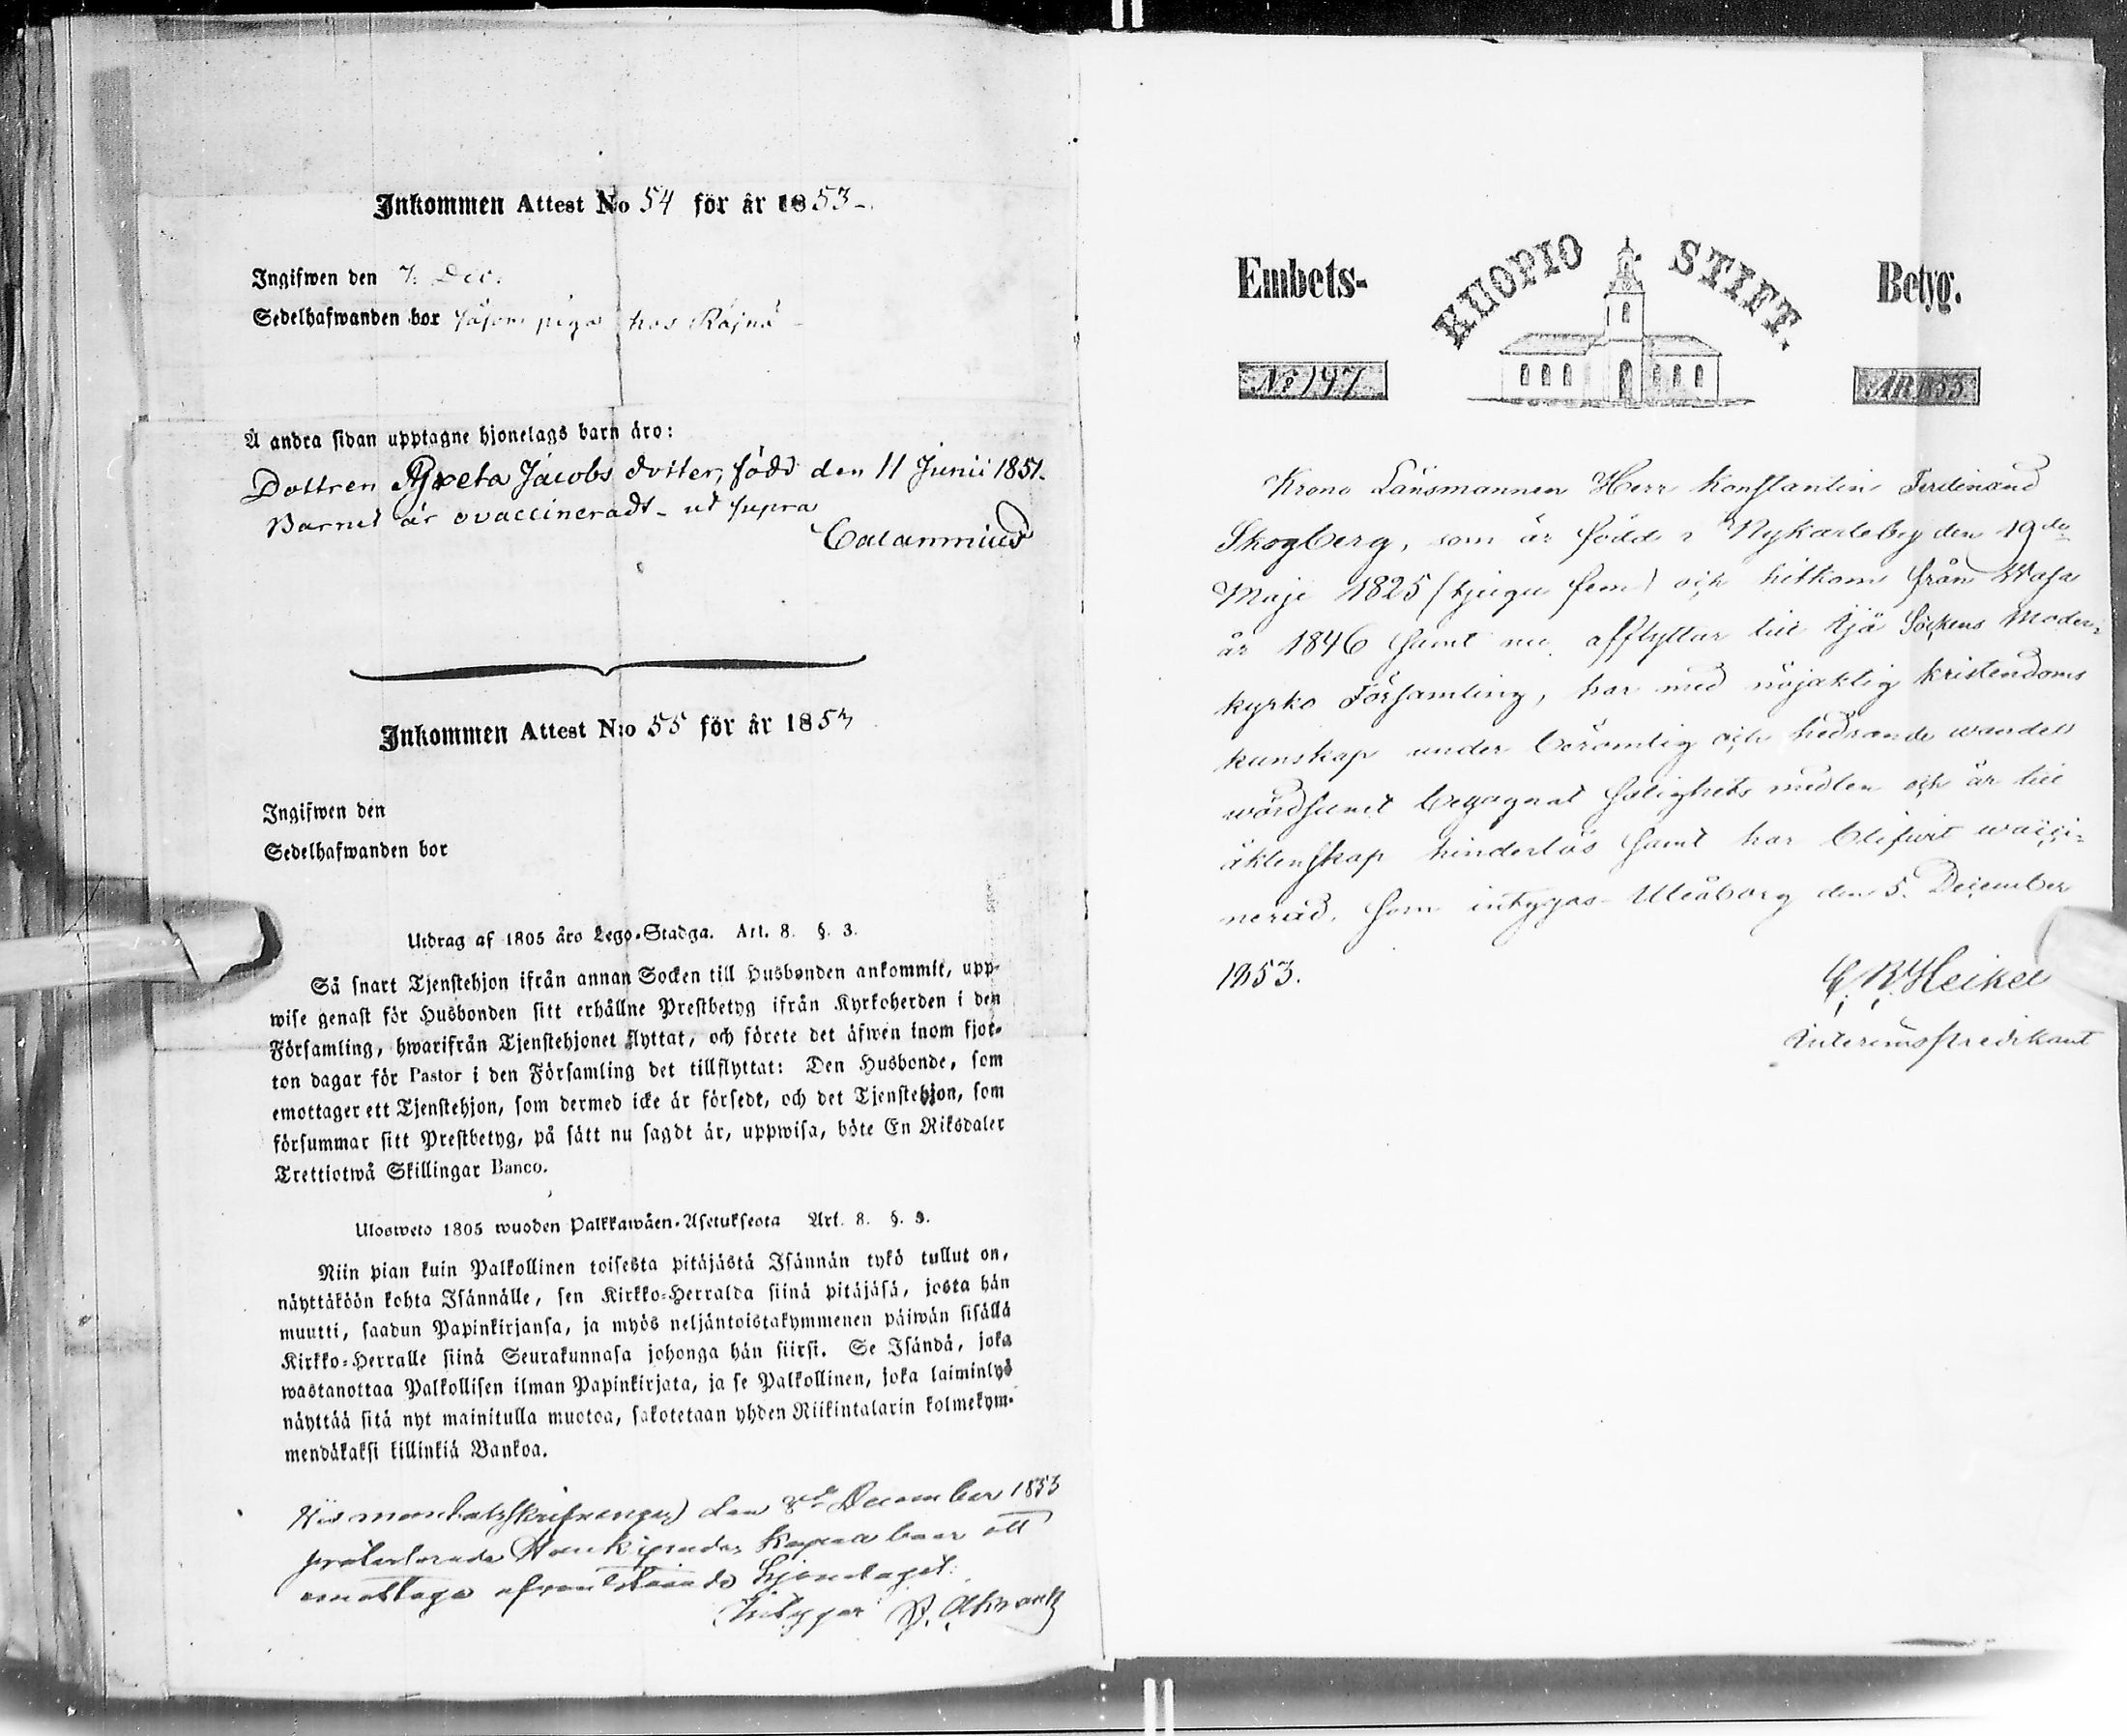 Inkommen Attest No 54 för år 1853
Ingifwen den 7. Dec.
Sedelhafwanden bor såsom piga hos
Å andra sidan upptagne hjonelags barn äro:
Dottren Greta Jacobs dotter, född den 11 Junii 1851.
Barnet är ovaccineradt - ut supra
Calamnius
Inkommen Attest N:o 55 för år 1853
Ingifwen den
Sedelhafwanden bor
Utdrag af 1805 års Lego-Stadga. Art. 8. §. 3.
Så snart Tjenstehjon ifrån annan Socken till Husbonden ankommit, upp-
wise genast för Husbonden sitt erhållne Prestbetyg ifrån Kyrkoherden i den
Församling, hwarifrån Tjenstehjonet flyttat, och förete det äfwen inom fjor-
ton dagar för Pastor i den Församling det tillflyttat: Den Husbonde, som
emottager ett Tjenstehjon, som dermed icke är försedt, och det Tjenstehjon, som
försummar sitt Prestbetyg, på sätt nu sagdt är, uppwisa, böte En Riksdaler
Trettiotwå Skillingar Banco.
Ulosweto 1805 wuoden Palkkawäen-Asetuksesta Art. 8. §. 3.
Niin pian kuin Palkollinen toisesta pitäjästä Isännän tykö tullut on,
näyttäköön kohta Isännälle, sen Kirkko-Herralda siinä pitäjäsä, josta hän
muutti, saadun Papinkirjansa, ja myös neljäntoistakymmenen päiwän sisällä
Kirkko-Herralle siinä Seurakunnasa johonga hän siirsi. Se Isändä, joka
wastanottaa Palkollisen ilman Papinkirjata, ja se Palkollinen, joka laiminlyö
näyttää sitä nyt mainitulla muotoa, sakotetaan yhden Riikintalarin kolmekym-
mendäkaksi killinkiä Bankoa.
Wid mantalsskrifningen den 8de December 1853
Haukipudas Kapell att
emottaga hjonelaget.
Intygar
Embets-
KUOPIO STIFT.
Betyg.
No 147
ÅR 1853.
Krono Länsmannen Herr Konstantin Ferdinand
Skogberg, som är född i Nykarleby den 19de
Maji 1825 (tjugu fem) och hitkom från Wasa
år 1846 samt nu afflyttar till Ijå Sockens Moder-
kyrko Församling, har med nöjaktig kristendoms
kunskap under berömlig och hedrande wandel
wördsamt begagnat salighets medlen och är till
äktenskap hinderlös samt har blifwit wacci-
nerad, som intygas Uleåborg den 5. December
1853.
Heikel
Interimspredikant